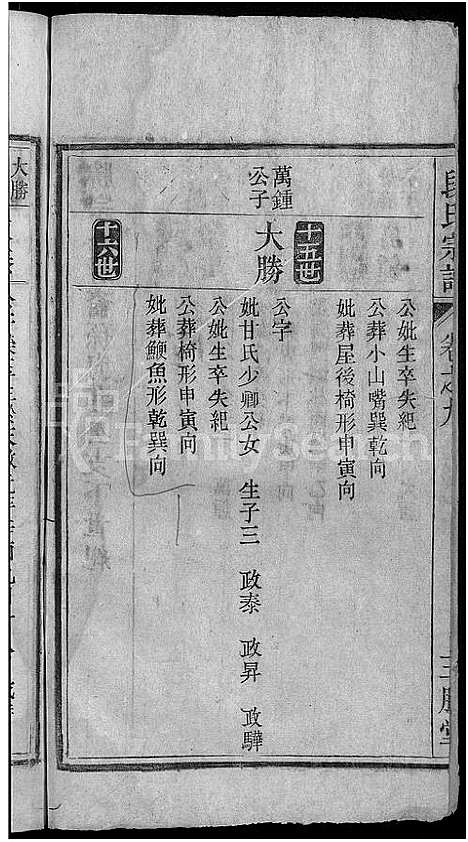 段氏宗譜
三勝堂
公妣生卒失紀
公葬小山嘴巽乾向
妣葬屋後椅形申寅向
十五世
萬鍾公子
大勝
公字
妣甘氏少卿公女 生子三 政泰 政昇 政驊
公妣生卒失紀
公葬椅形申寅向
妣葬鰱魚形乾巽向
十六世
大勝
FamilySearch